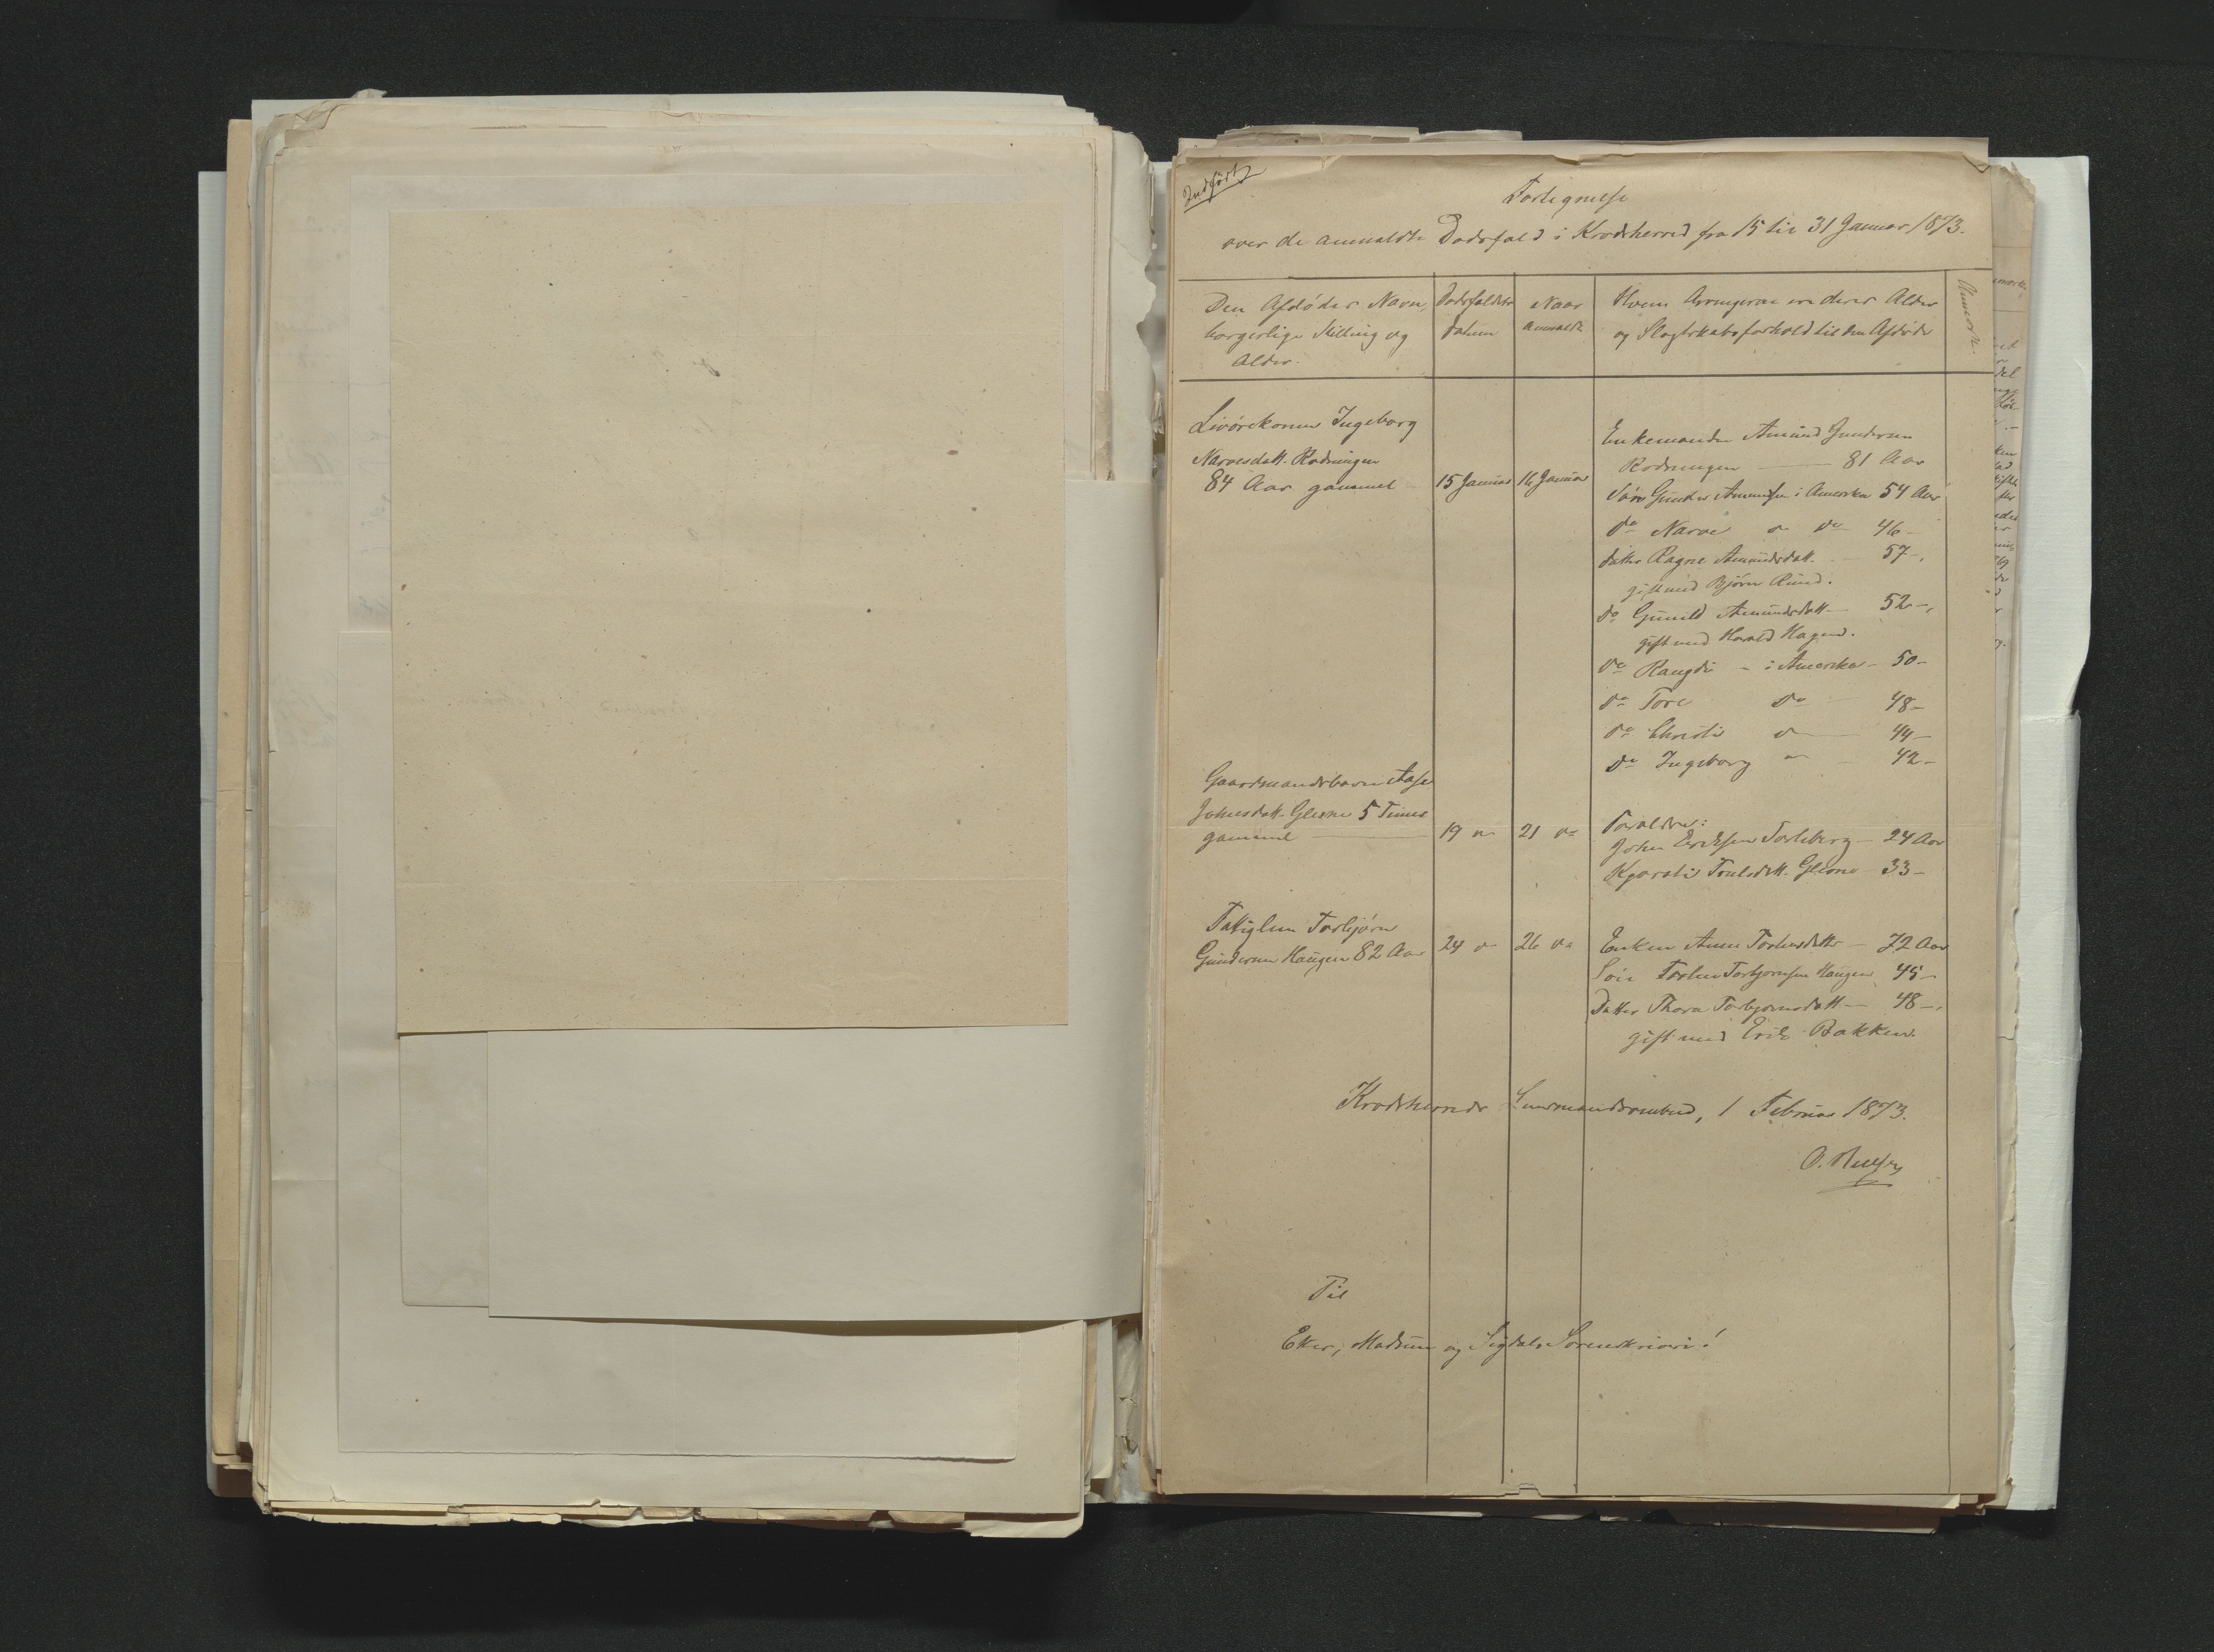 Indført
Fortegnelse
over de anmeldte Dødsfald i Krødsherred fra 15 til 31 Januar 1873.
Den Afdødes Navn, borgerlige Stilling og Alder.
Dødsfaldets Datum
Naar anmeldt
Hvem Arvingerne ere deres Alder og Slægtskabsforhold til den Afdøde
Anmærk.
Livørekonen Ingeborg
Narvesdatt. Rødningen
84 Aar gammel 15 Januar 16 Januar
Enkemanden Amund Gundersen
Rødningen — 81 Aar
Søn Gunder Amundsen i Amerika 54 Aar
do Narve do do 46 –
Datter Ragne Amundsdatt. – 57 –,
gift med Bjørn Rund.
do Gunild Amundsdatt – 52 –,
gift med Harald Hagen.
do Rangdi – i Amerika – 50 –
do Tore do – 48 –
do Christi do – 44 –
do Ingeborg do – 42 –
Gaardmandsbarn Aase
Johnsdatt. Glesne 5 Timer
gammel — 19 do 21 do
Forældre:
John Eriksen Sorteberg – 24 Aar
Kjersti Truls datt. Glesne 33 –
Fattiglem Torbjørn
Gundersen Haugen 82 Aar 24 do 26 do
Enken Anne Torkersdatter – 72 Aar
Søn Torkel Torbjørnsen Haugen 45 –
Datter Thora Torbjørnsdatt – 48 –,
gift med Erik Bakken.
Krødsherreds Lensmandsombud, 1 Februar 1873.
Til
Eker, Modum og Sigdals Sorenskriveri!